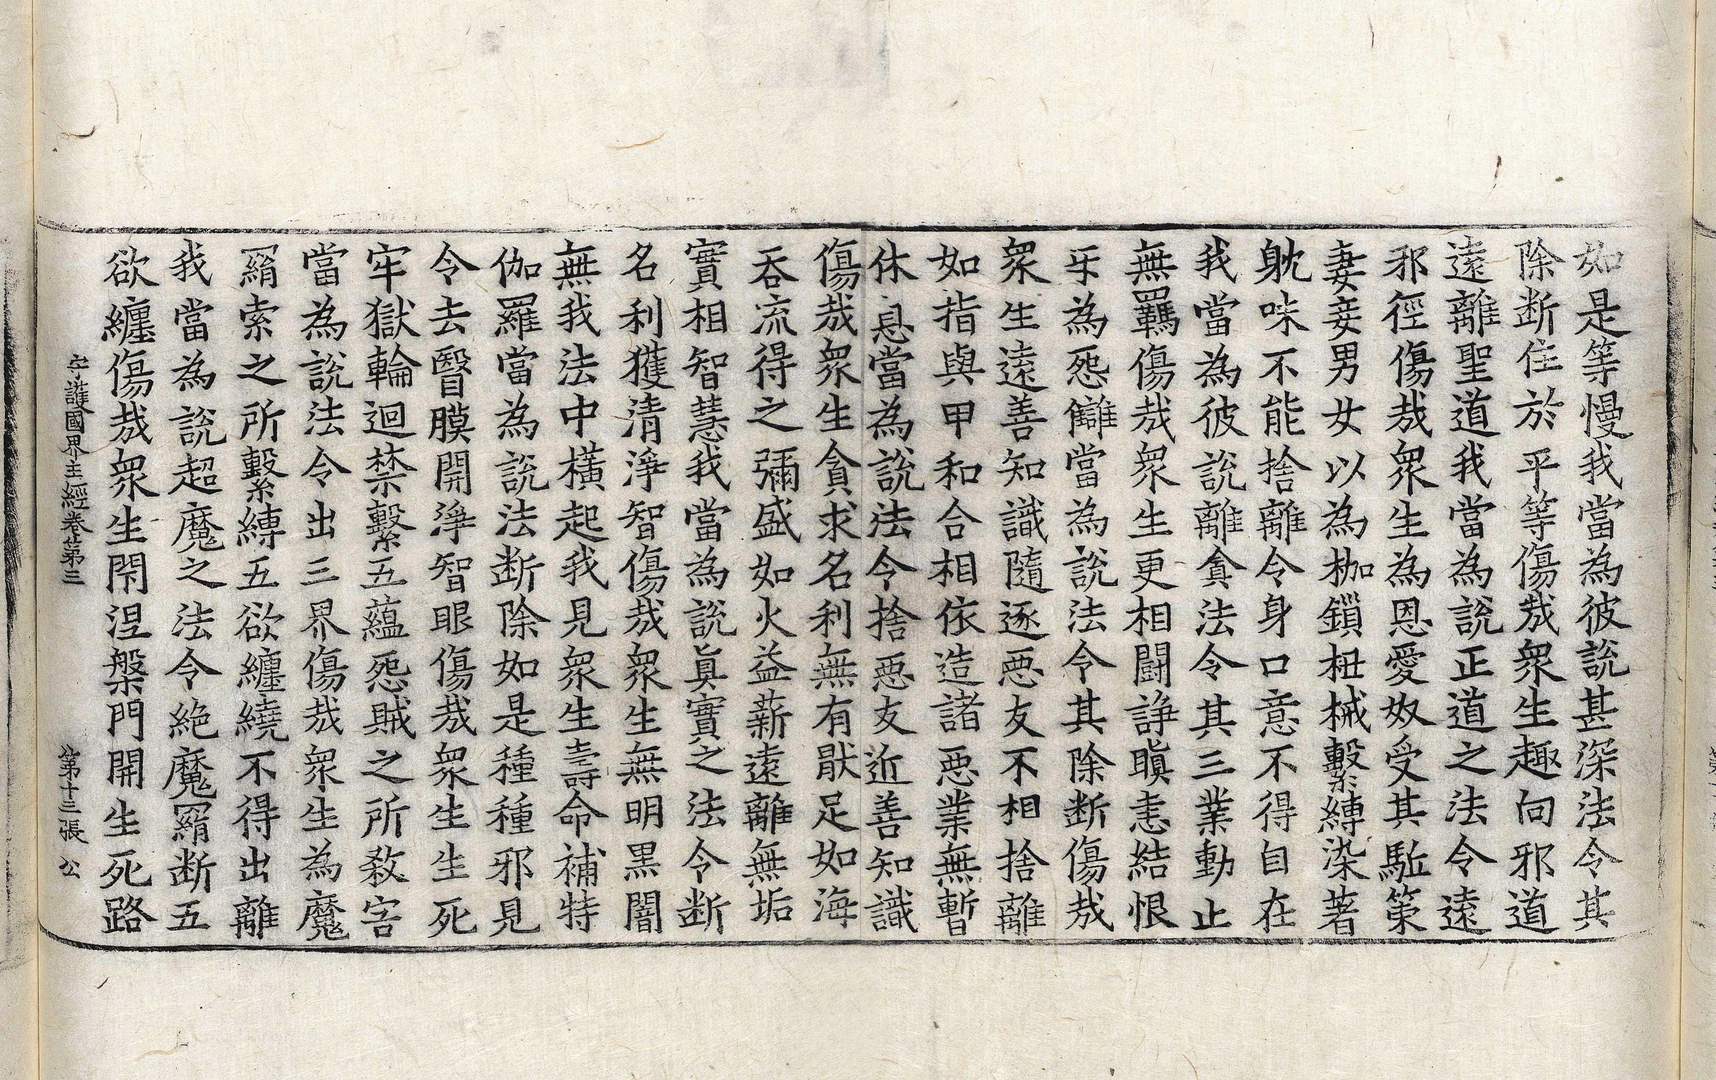 如是等慢我當為彼說甚深法令其
除断住於平等傷㦲衆生趣向邪道
遠離聖道我當為說正道之法令遠
邪徑傷㦲衆生為恩愛奴受其駈策
妻妾男女以為枷鎖杻械繫縛染著
躭味不能捨離令身口意不得自在
我當為彼說離貪法令其三業動止
無羈傷㦲衆生更相鬪諍瞋恚結恨
牙為怨讎當為說法令其除断傷㦲
衆生遠善知識隨逐惡友不相捨離
如指與甲和合相依造諸惡業無暫
休息當為說法令捨惡友近善知識
傷㦲衆生貪求名利無有猒足如海
吞流得之彌盛如火益薪遠離無垢
實相智慧我當為說眞實之法令断
名利獲清淨智傷㦲衆生無明黑闇
無我法中橫起我見衆生壽命補特
伽羅當為說法断除如是種種邪見
令去瞖膜開淨智眼傷㦲衆生生死
牢獄輪迴禁繫五蘊怨賊之所殺害
當為說法令出三界傷㦲衆生為魔
羂索之所繫縛五欲纏繞不得出離
我當為說超魔之法令絶魔羂断五
欲纏傷㦲衆生閇涅槃門開生死路
守護國界主經卷第三 第十三張 公